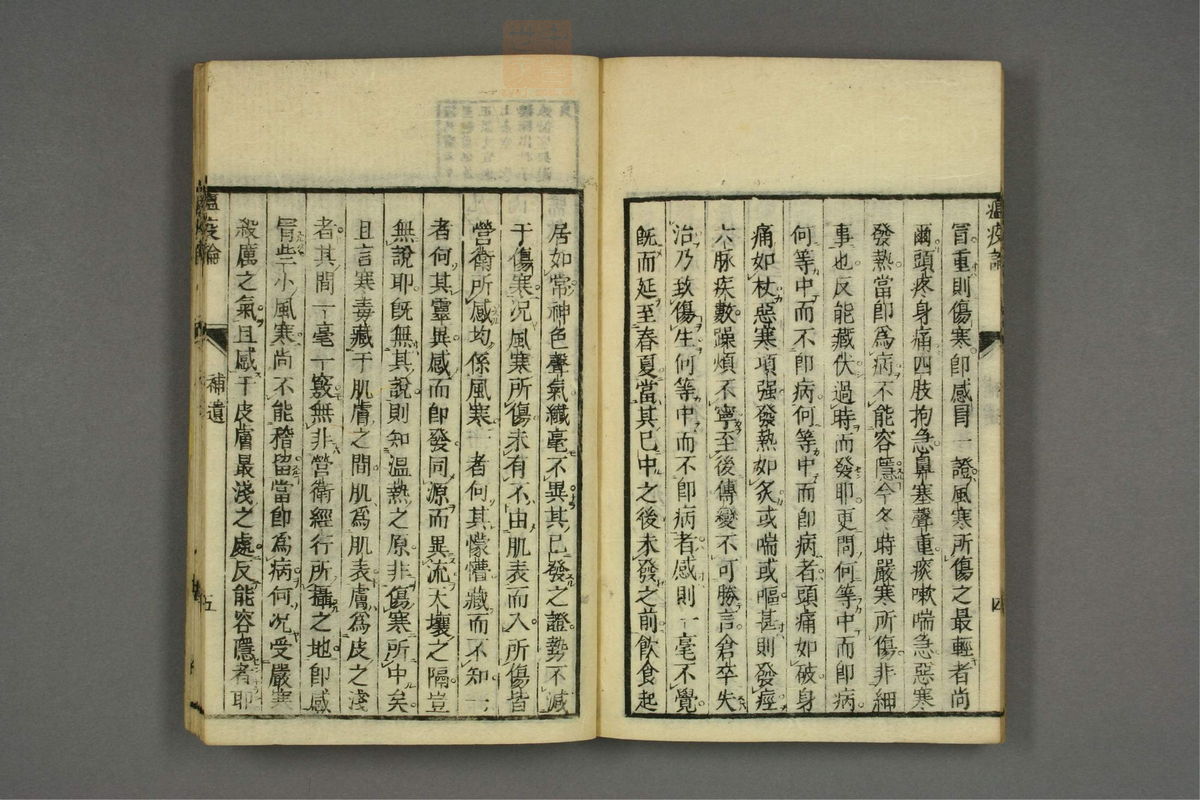 瘟疫論
四
冒重則傷寒即感冒一證風寒所傷之最輕者尚
爾頭疼身痛四肢拘急鼻塞聲重痰嗽喘急惡寒
發熱當即爲病不能容隱今冬時嚴寒所傷非細
事也反能藏伏過時而發耶更問何等中而即病
何等中而不即病何等中而即病者頭痛如破身
痛如杖惡寒項强發熱如炙或喘或嘔甚則發痙
六脉疾數躁煩不寧至後傳變不可勝言倉卒失
治乃致傷生何等中而不即病者感則一毫不覺
既而延至春夏當其已中之後未發之前飲食起
居如常神色聲氣纖毫不異其已發之證勢不減
于傷寒况風寒所傷未有不由肌表而入所傷皆
營衛所感均係風寒一者何其懞懵藏而不知一
者何其靈異感而即發同源而異流天壤之隔豈
無說耶既無其說則知温熱之原非傷寒所中矣
且言寒毒藏于肌膚之間肌爲肌表膚爲皮之淺
者其間一毫一竅無非營衛經行所攝之地即感
冐些小風寒尚不能稽留當即爲病何况受嚴寒
殺厲之氣且感于皮膚最淺之處反能容隱者耶
瘟疫論
補遺
五